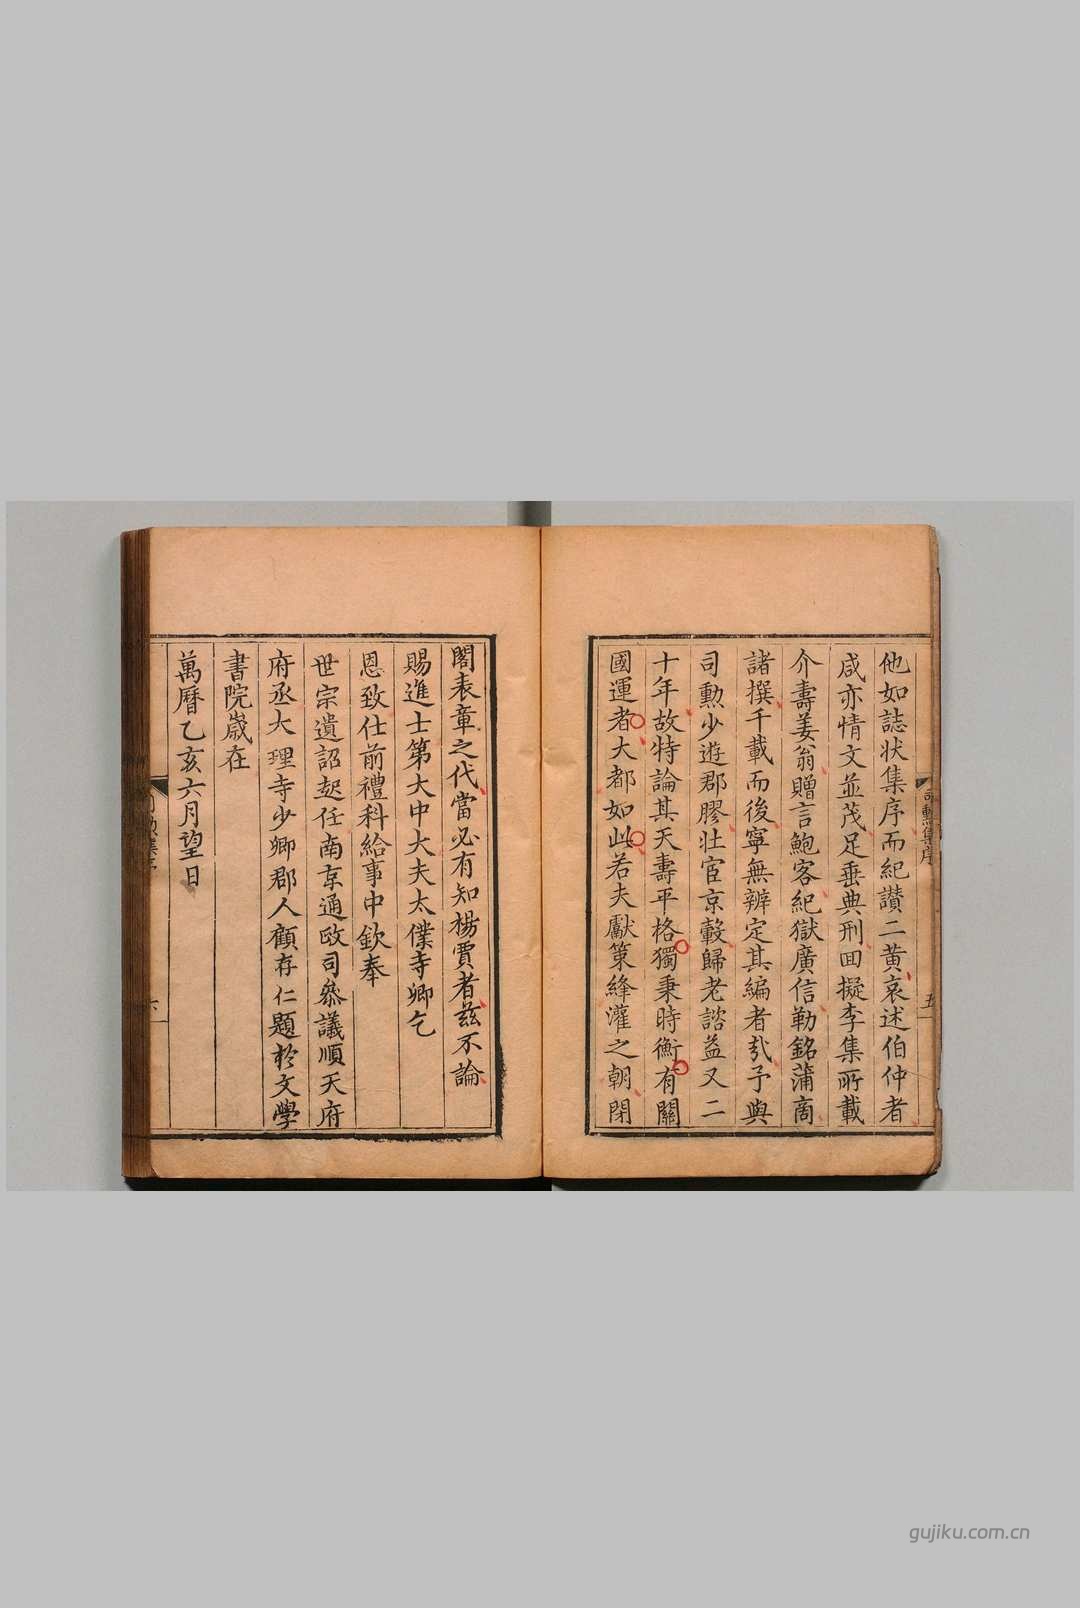 他如誌状集序而紀讃二黄哀述伯仲者
咸亦情文並茂足垂典刑回擬李集所載
介壽姜翁贈言鮑客紀獄廣信勒銘蒲商
諸撰千載而後寧無辨定其編者㢤予與
司勲少遊郡膠壮宦京轂歸老諮益又二
十年故特論其天壽平格獨秉時衡有關
國運者大都如此若夫獻策絳灌之朝閉
司勲集序
五
閣表章之代當必有知楊賈者茲不論
賜進士第大中大夫太僕寺卿乞
恩致仕前禮科給事中欽奉
世宗遺詔起任南京通政司叅議順天府
府丞大理寺少卿郡人顧存仁題於文學
書院嵗在
萬曆乙亥六月望日
六
gujiku.com.cn